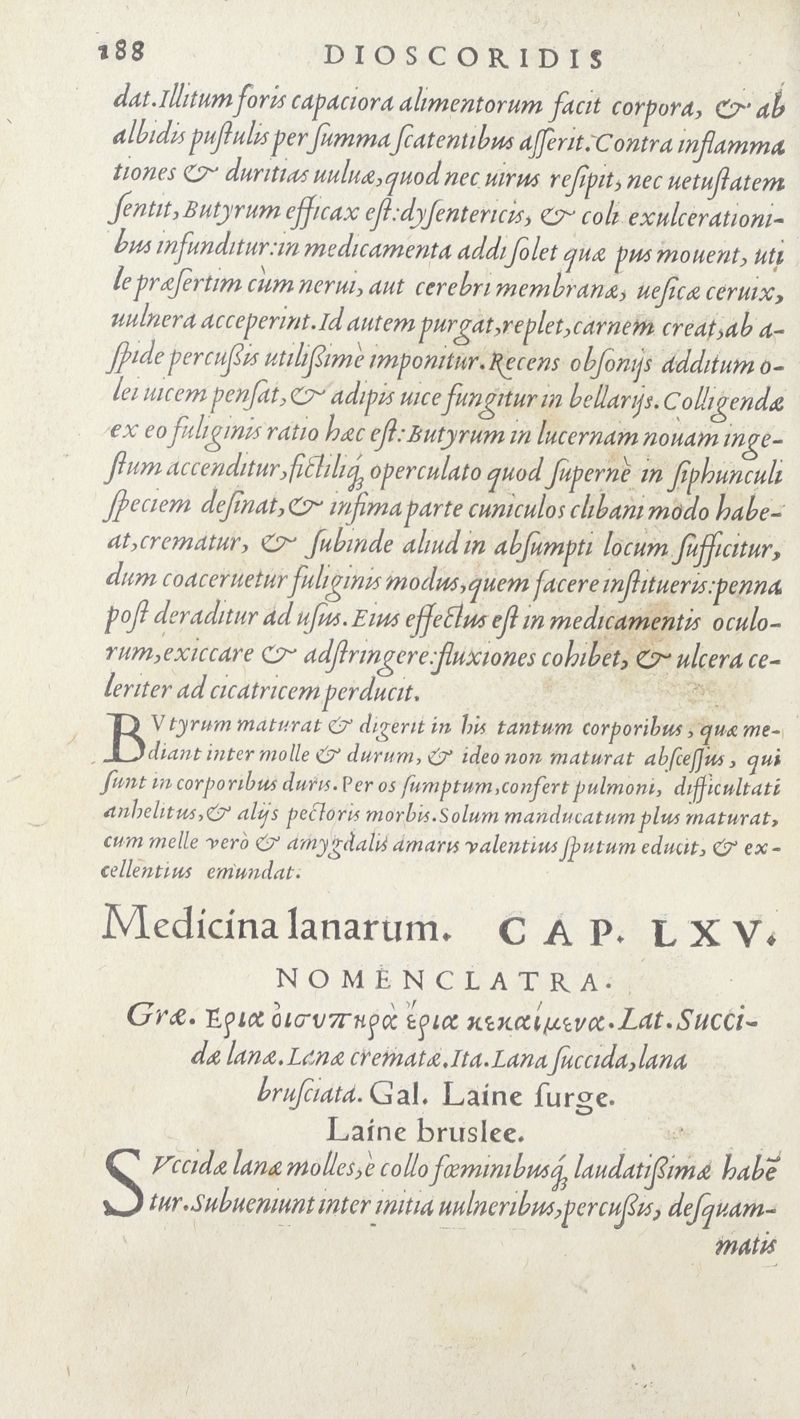 188 DIOSCORIDIS
dat. Illitum foris capaciora alimentorum facit corpora, & ab
albidis puſtulis per ſumma ſcatentibus aſſerit. Contra inflamma
tiones & duritias uuluæ, quod nec uirus reſipit, nec uetuſtatem
ſentit, Butyrum efficax eſt: dyſentericis, & coli exulcerationi-
bus infunditur: in medicamenta addi ſolet quæ pus mouent, uti
le præſertim cùm nerui, aut cerebri membranæ, ueſicæ ceruix,
uulnera acceperint. Id autem purgat, replet, carnem creat, ab a-
ſpide percußis utilißimè imponitur. Recens obſonijs additum o-
lei uicem penſat, & adipis uice fungitur in bellarijs. Colligendæ
ex eo fuliginis ratio hæc eſt: Butyrum in lucernam nouam inge-
ſtum accenditur, fictiliq́; operculato quod ſupernè in ſiphunculi
ſpeciem deſinat, & infima parte cuniculos clibani modo habe-
at, crematur, & ſubinde aliud in abſumpti locum ſufficitur,
dum coaceruetur fuliginis modus, quem facere inſtitueris: penna
poſt deraditur ad uſus. Eius effectus eſt in medicamentis oculo-
rum, exiccare & adſtringere: fluxiones cohibet, & ulcera ce-
leriter ad cicatricem perducit.
BVtyrum maturat & digerit in his tantum corporibus, quæ me-
diant inter molle & durum, & ideo non maturat abſceſſus, qui
ſunt in corporibus duris. Per os ſumptum, confert pulmoni, difficultati
anhelitus, & alijs pectoris morbis. Solum manducatum plus maturat,
cum melle verò & amygdalis amaris valentius ſputum educit, & ex-
cellentius emundat.
Medicina lanarum. CAP. LXV.
NOMENCLATRA.
Græ. Ερια ὀισυπηρὰ ἔρια κεκαίμενα. Lat. Succi-
dæ lanæ. Lanæ crematæ. Ita. Lana ſuccida, lana
bruſciata. Gal. Laine ſurge.
Laine bruslee.
SVccidæ lanæ molles, è collo fœminibusq́; laudatißimæ habē
tur. Subueniunt inter initia uulneribus, percußis, deſquam-
matis